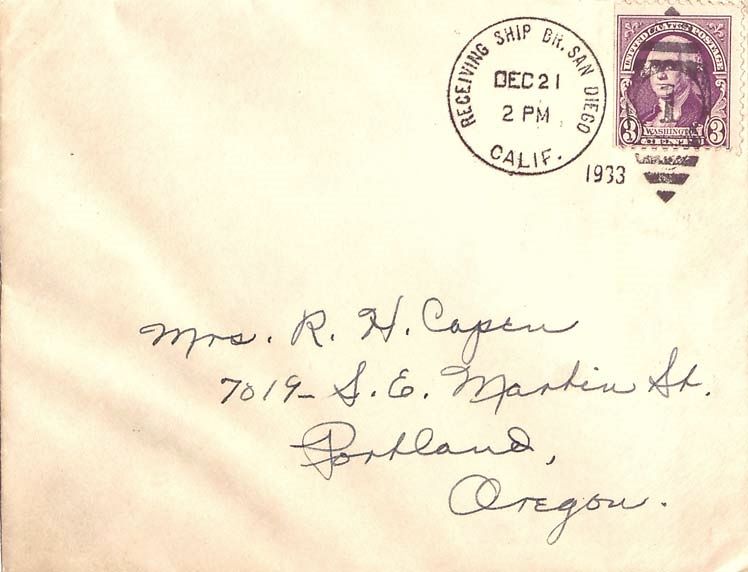 RECEIVING SHIP BR. SAN DIEGO
DEC 21
2 PM
CALIF.
1933
UNITED STATES POSTAGE
1
WASHINGTON
3 3
Mrs. R. H. Capen
7019- S. E. Martin St.
Portland,
Oregon.